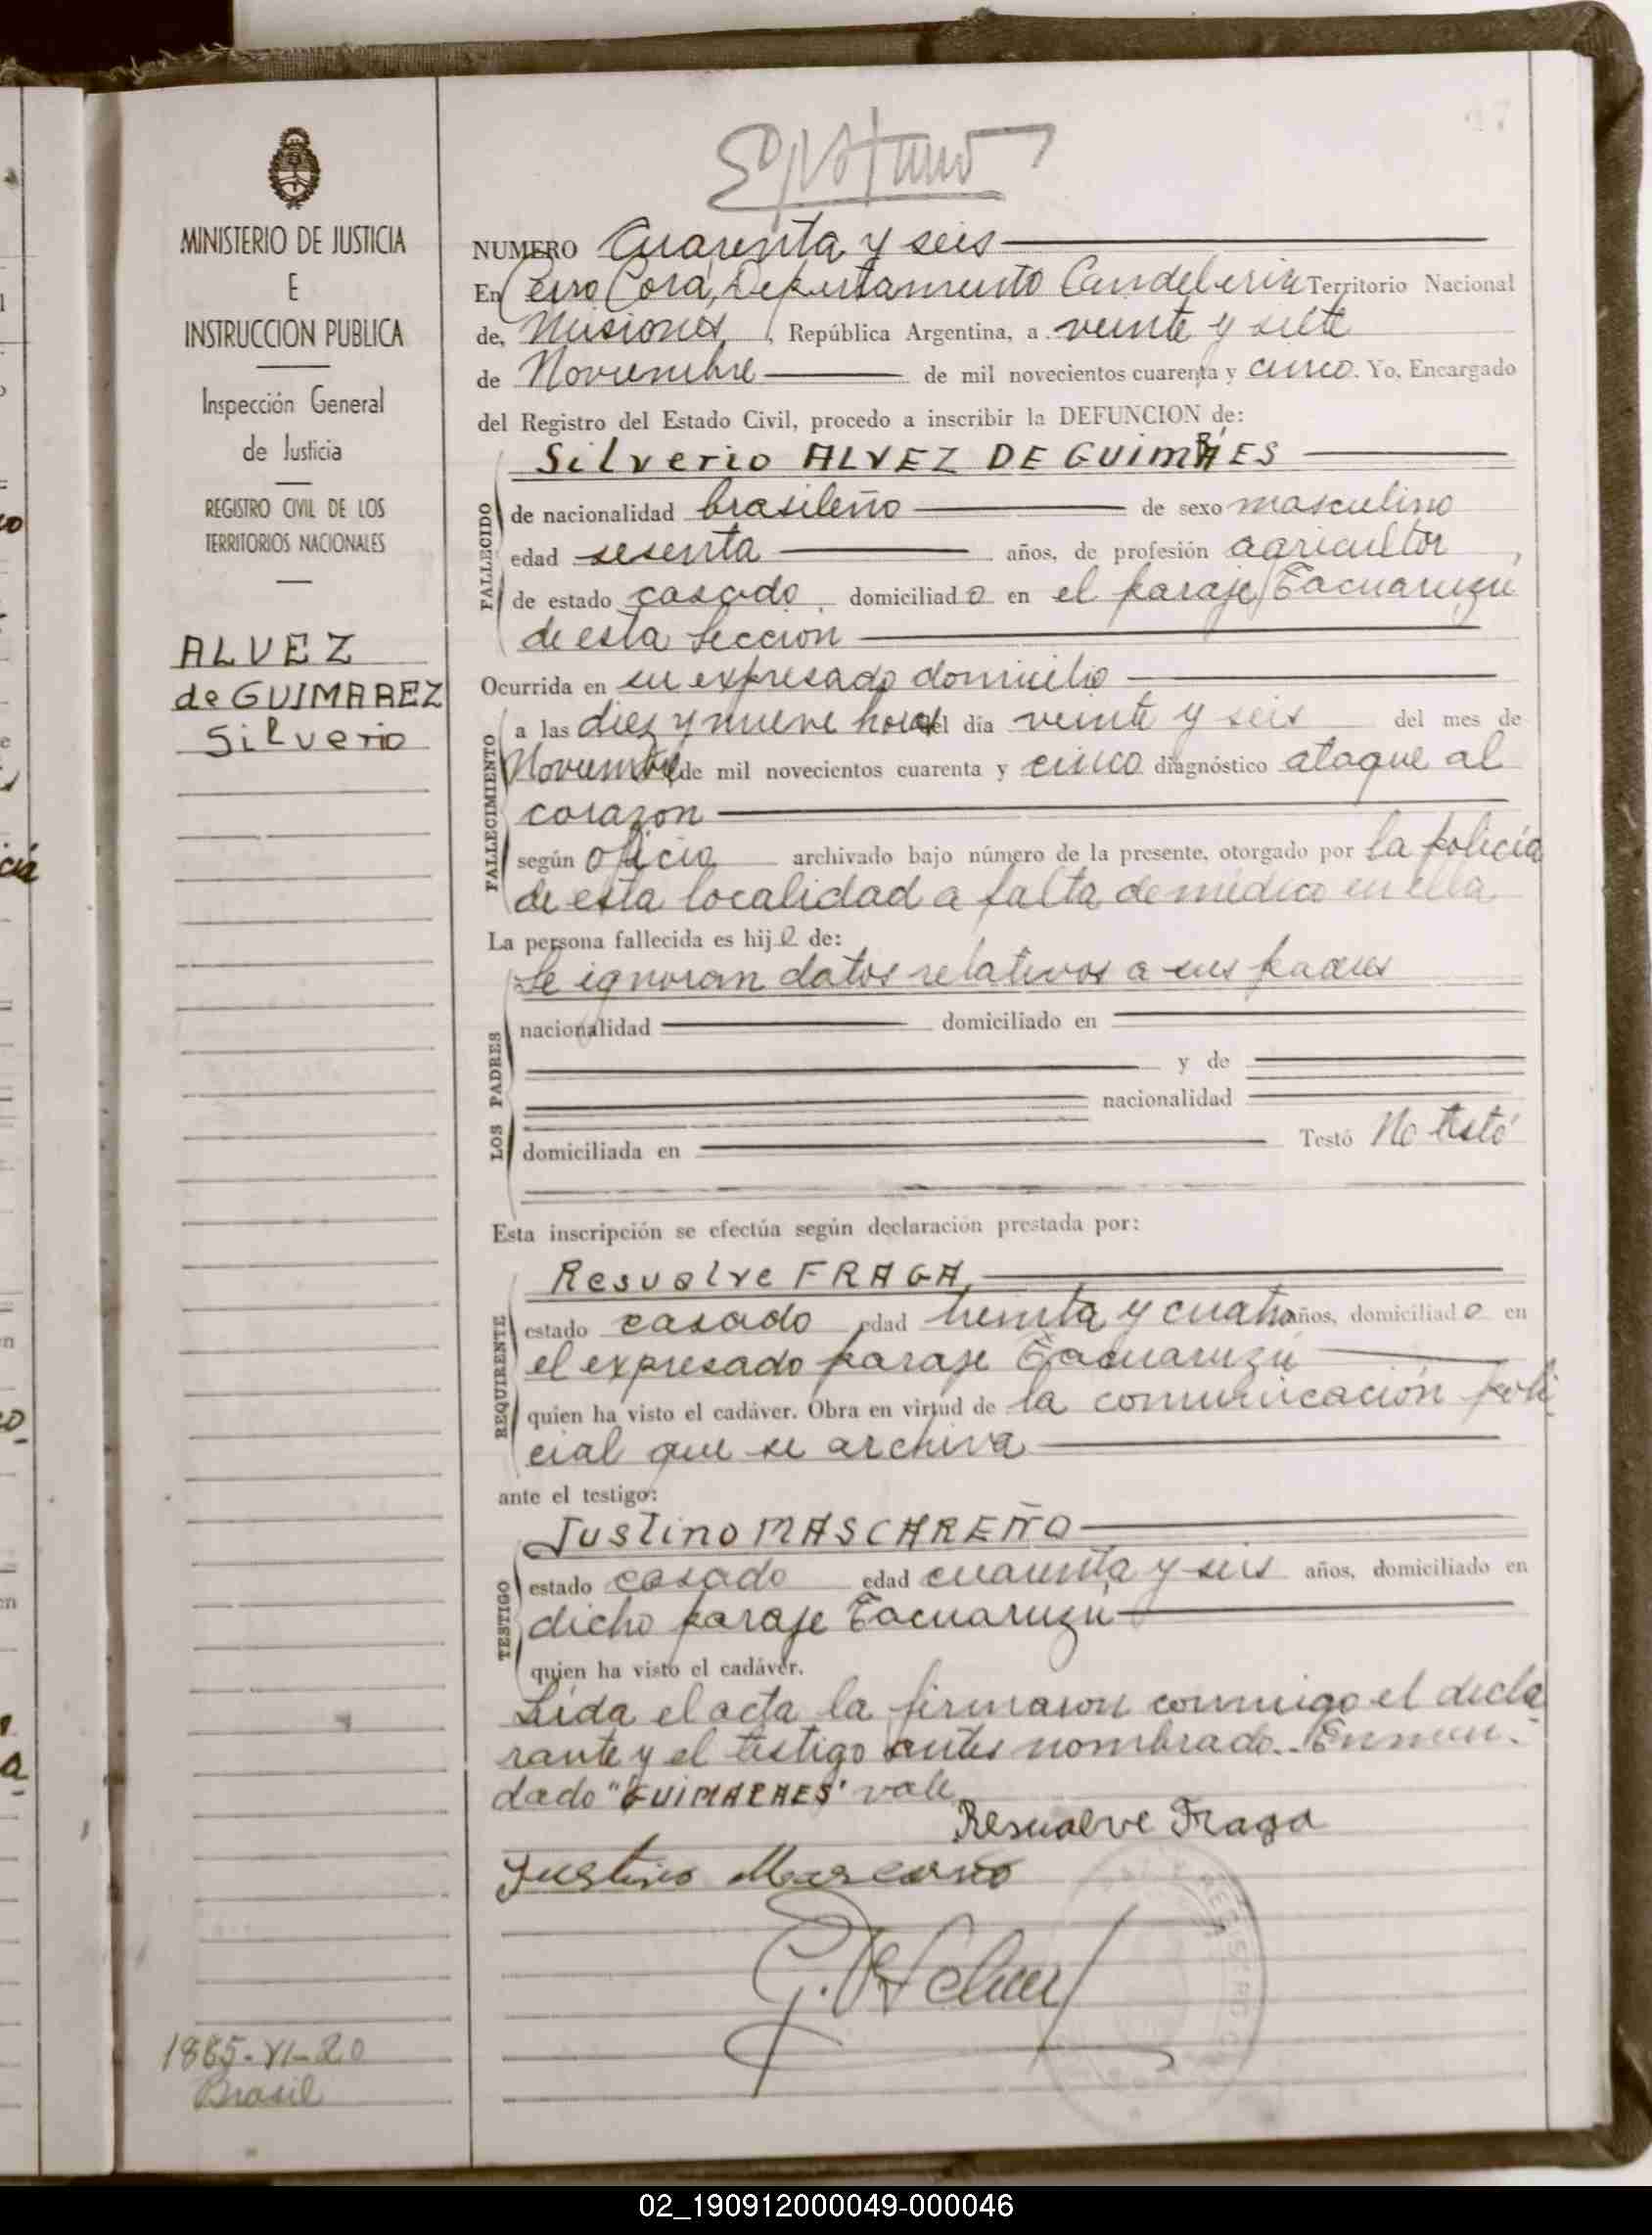 MINISTERIO DE JUSTICIA
E
INSTRUCCION PUBLICA
Inspección General
de Justicia
REGISTRO CIVIL DE LOS
TERRITORIOS NACIONALES
ALVEZ
de GUIMAREZ
Silverio
1885-VI-20
Brasil
NUMERO Cuarenta y seis
En Cerro Corá, Departamento Candelaria Territorio Nacional
de, Misiones, República Argentina, a veinte y siete
de Noviembre de mil novecientos cuarenta y cinco. Yo, Encargado
del Registro del Estado Civil, procedo a inscribir la DEFUNCION de:
Silverio ALVEZ DE GUIMARAES
FALLECIDO
de nacionalidad brasileño de sexo masculino
edad sesenta años, de profesión agricultor
de estado casado, domiciliado en el paraje Tacuaruzú
de esta Sección
Ocurrida en su expresado domicilio
FALLECIMIENTO
a las diez y nueve horas del día veinte y seis del mes de
Noviembre de mil novecientos cuarenta y cinco diagnóstico ataque al
corazon
según oficio archivado bajo número de la presente, otorgado por la policía
de esta localidad a falta de médico en ella
La persona fallecida es hijo de:
LOS PADRES
Se ignoran datos relativos a sus padres
nacionalidad domiciliado en
y de
nacionalidad
domiciliada en Testó No testó
Esta inscripción se efectúa según declaración prestada por:
REQUIRENTE
Resualve FRAGA,
estado casado edad treinta y cuatro años, domiciliado en
el expresado paraje Tacuaruzú
quien ha visto el cadáver. Obra en virtud de la comunicación poli
cial que se archiva
ante el testigo:
TESTIGO
Justino MASCAREÑO
estado casado edad cuarenta y seis años, domiciliado en
dicho paraje Tacuaruzú
quien ha visto el cadáver.
Leida el acta la firmaron conmigo el decla
rante y el testigo antes nombrado.. Enmen-
dado "GUIMARAES" vale
Resualve Fraga
Justino
02_190912000049-000046